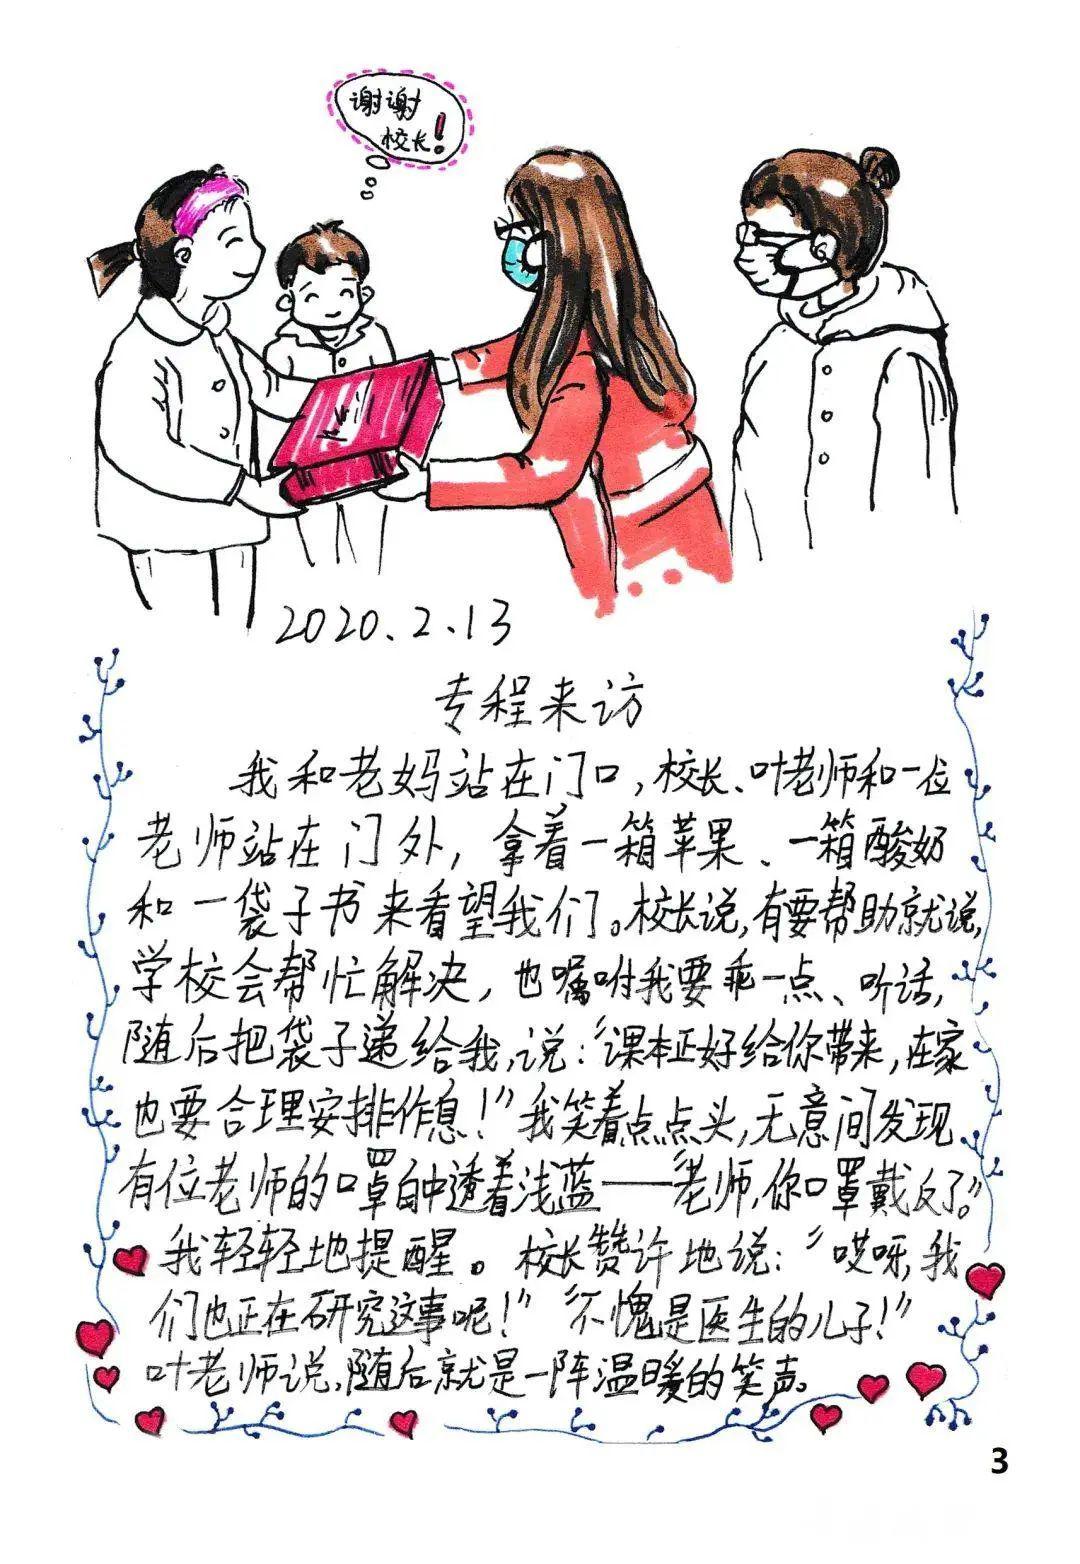 谢谢
校长！
2020.2.13
专程来访
我和老妈站在门口，校长、叶老师和一位
老师站在门外，拿着一箱苹果、一箱酸奶
和一袋子书来看望我们。校长说，有要帮助就说，
学校会帮忙解决，也嘱咐我要乖一点、听话，
随后把袋子递给我，说：“课本正好给你带来，在家
也要合理安排作息！”我笑着点点头，无意间发现
有位老师的口罩自中透着浅蓝——“老师，你口罩戴反了。”
我轻轻地提醒。校长赞许地说：“哎呀，我
们也正在研究这事呢！”“不愧是医生的儿子！”
叶老师说，随后就是一阵温暖的笑声。
3